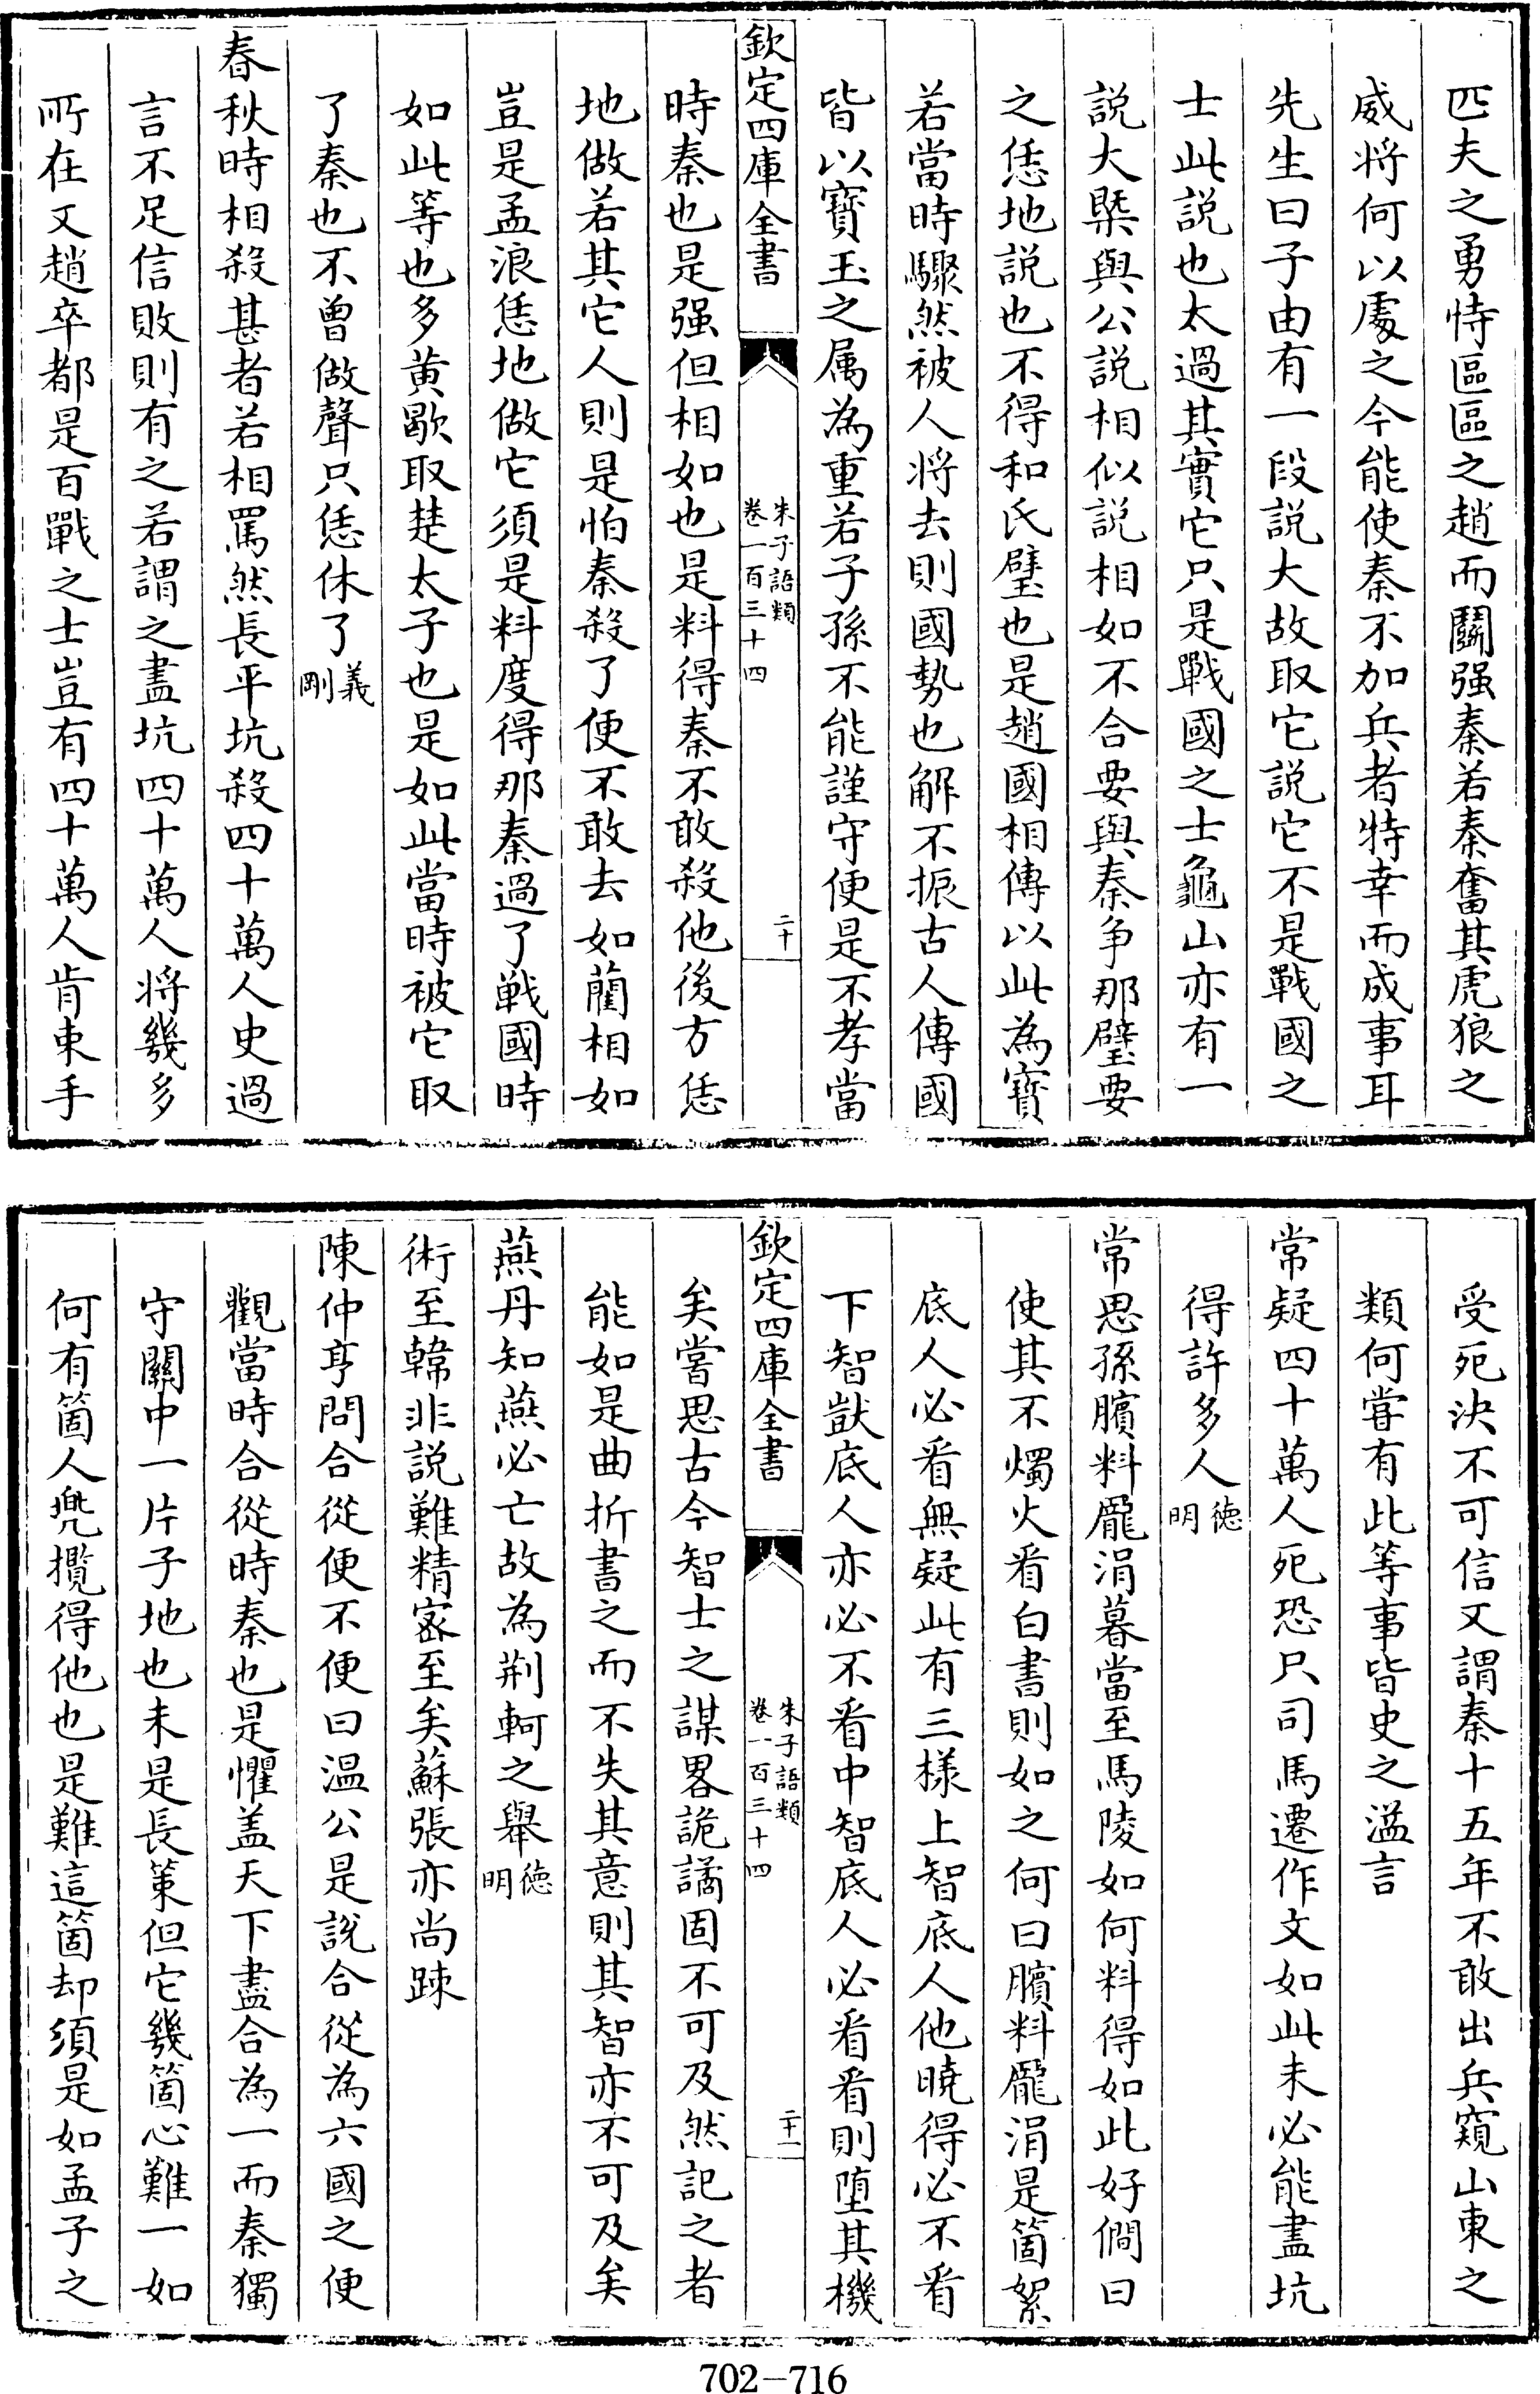 匹夫之勇恃區區之趙而鬭强秦若秦奮其虎狼之
威将何以處之今能使秦不加兵者特幸而成事耳
先生曰子由有一段説大故取它説它不是戰國之
士此説也太過其實它只是戰國之士龜山亦有一
説大槩與公説相似説相如不合要與秦争那璧要
之恁地説也不得和氏璧也是趙國相傳以此為寳
若當時驟然被人将去則國勢也解不振古人傳國
皆以寳玉之属為重若子孫不能謹守便是不孝當
欽定四庫全書
朱子語類
卷一百三十四
二十
時秦也是强但相如也是料得秦不敢殺他後方恁
地做若其它人則是怕秦殺了便不敢去如藺相如
豈是孟浪恁地做它須是料度得那秦過了戰國時
如此等也多黄歇取楚太子也是如此當時被它取
了秦也不曾做聲只恁休了義剛
春秋時相殺甚者若相罵然長平坑殺四十萬人史過
言不足信敗則有之若謂之盡坑四十萬人将幾多
所在又趙卒都是百戰之士豈有四十萬人肯束手
受死決不可信又謂秦十五年不敢出兵窺山東之
類何嘗有此等事皆史之溢言
常疑四十萬人死恐只司馬遷作文如此未必能盡坑
得許多人徳明
常思孫臏料龐涓暮當至馬陵如何料得如此好僩曰
使其不燭火看白書則如之何曰臏料龐涓是箇絮
底人必看無疑此有三様上智底人他曉得必不看
下智獃底人亦必不看中智底人必看看則堕其機
欽定四庫全書
朱子語類
卷一百三十四
二十一
矣嘗思古今智士之謀畧詭譎固不可及然記之者
能如是曲折書之而不失其意則其智亦不可及矣
燕丹知燕必亡故為荆軻之舉徳明
術至韓非説難精密至矣蘇張亦尚踈
陳仲亨問合從便不便曰温公是説合從為六國之便
觀當時合從時秦也是懼盖天下盡合為一而秦獨
守關中一片子地也未是長策但它幾箇心難一如
何有箇人兠攬得他也是難這箇却須是如孟子之
702-716